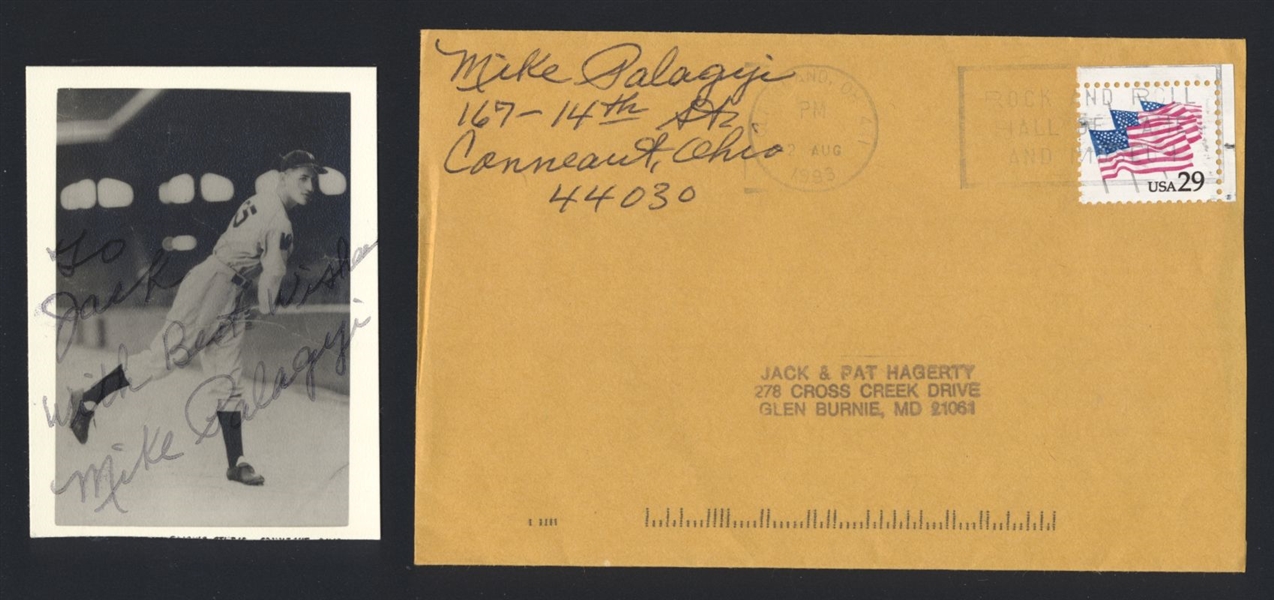 To
Jack
With Best Wishes
Mike Palagyi
5
Mike Palagyi
167-14th St.
Conneaut, Ohio
44030
PM
2 AUG
1993
ROCK AND ROLL
HALL OF FAME
AND MUSEUM
USA 29
JACK & PAT HAGERTY
278 CROSS CREEK DRIVE
GLEN BURNIE, MD 21061